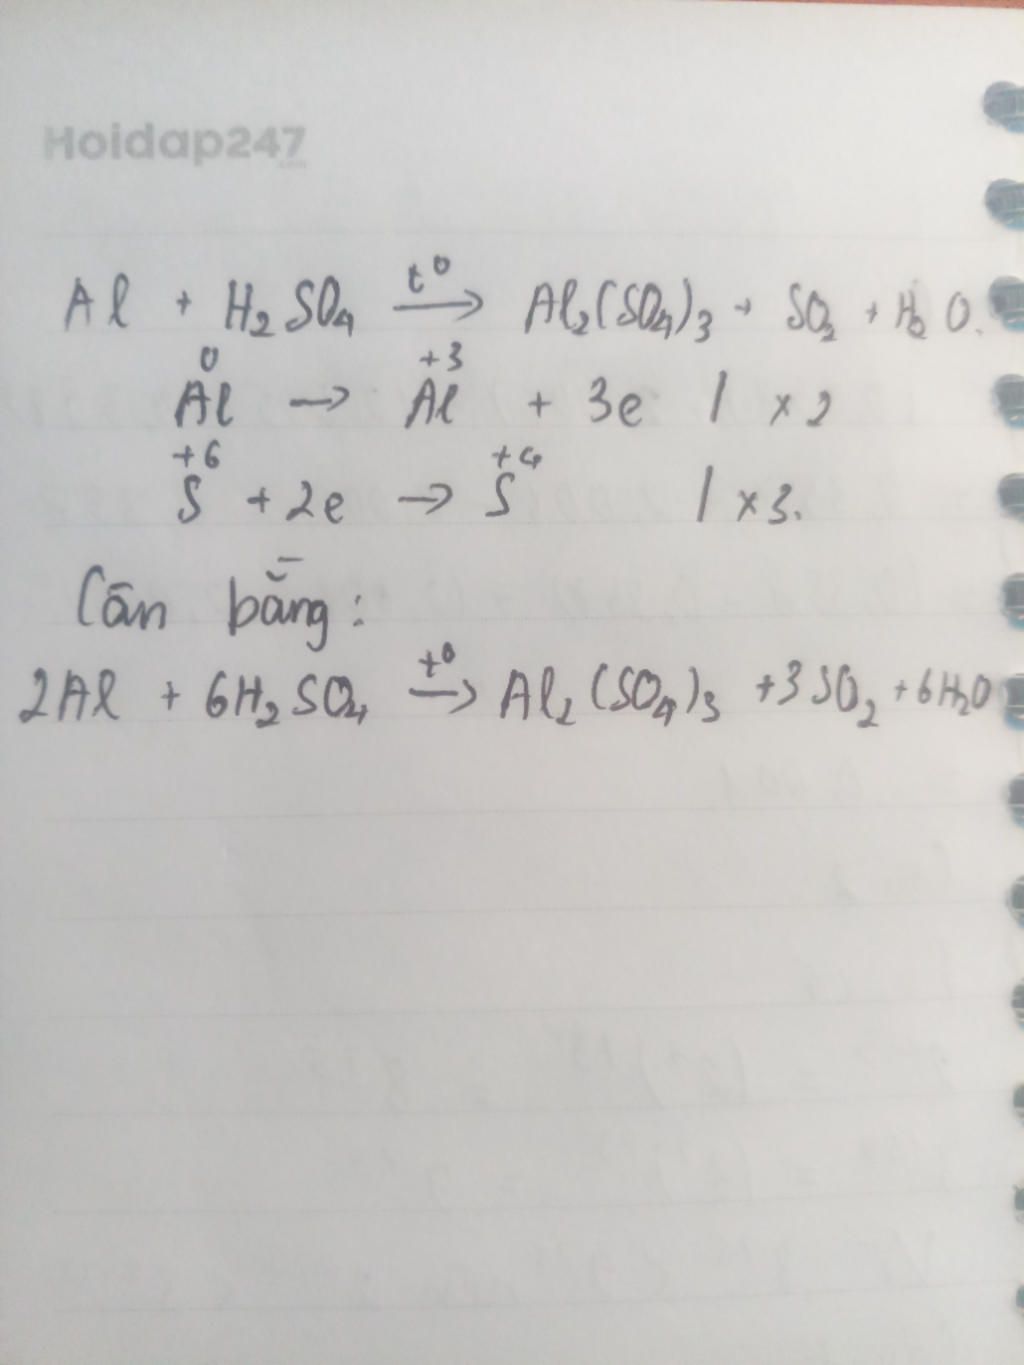 Hoidap247
.com
Al + H₂SO₄ t⁰→ Al₂(SO₄)₃ + SO₂ + H₂O.
⁰Al → ⁺³Al + 3e | × 2
⁺⁶S + 2e → ⁺⁴S | × 3.
Cān bằng:
2Al + 6H₂SO₄ t⁰→ Al₂(SO₄)₃ + 3SO₂ + 6H₂O